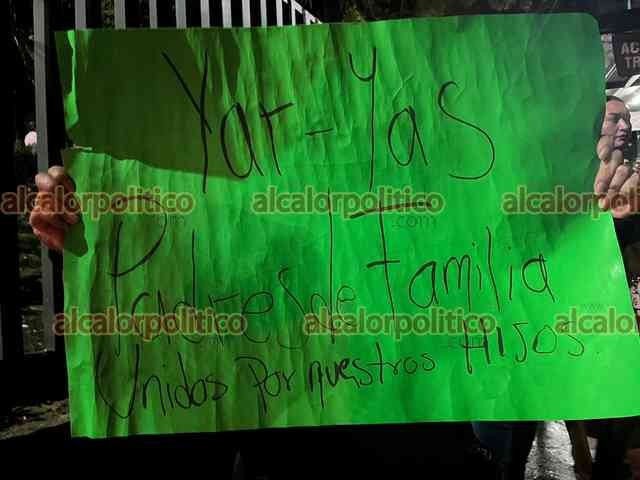 Yar-Yas
Padres de Familia
Unidos Por nuestros HIJOS.
AC
TR
alcalorpolitico
.com
alcalorpolitico
.com
alcalorpolitico
alcalorpolitico
alcalorpolitico
.com
alcalor